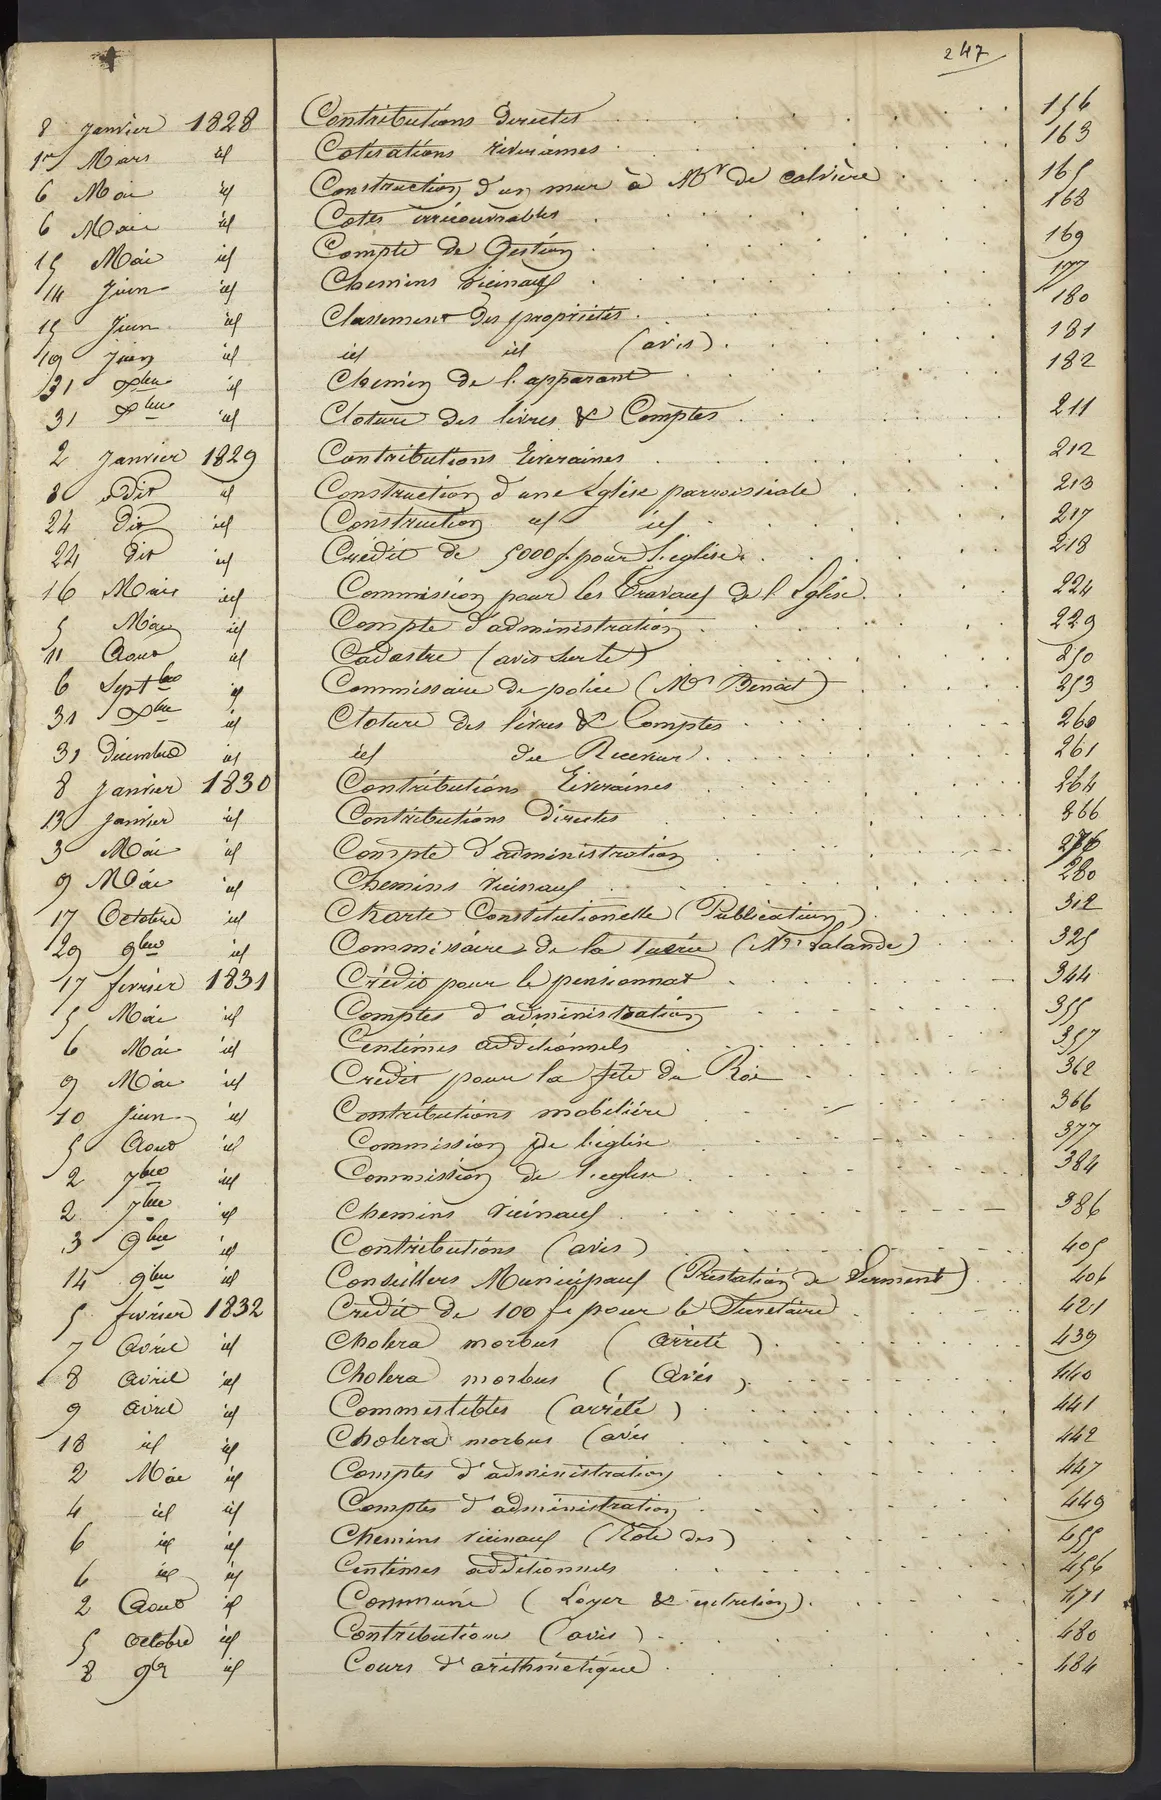 247
8 Janvier 1828 Contributions directes 156
1er Mars id Cotisations riveraines 163
6 Mai id Construction d'un mur à Mr de calvière 165
6 Mai id Cotes irrécouvrables 168
15 Mai id Compte de Gestion 169
14 Juin id Chemins vicinaux 177
15 Juin id Classement des propriétés 180
19 Juin id id id (avis) 181
31 Xbre id Chemin de l'apparant 182
31 Xbre id Cloture des livres & Comptes 211
2 Janvier 1829 Contributions Riveraines 212
8 dit id Construction d'une Eglise parroissiale 213
24 dit id Construction id id 217
24 dit id Crédit de 5000 f. pour l'eglise 218
16 Mars id Commission pour les Travaux de l'Eglise 224
5 Mai id Compte d'administration 229
11 Aout id Cadastre (avis sur le) 250
6 Septbre id Commissaire de police (Mr Benoit) 253
31 Xbre id Cloture des livres & Comptes 260
31 Décembre id id du Receveur 261
8 Janvier 1830 Contributions Riveraines 264
13 Janvier id Contributions directes 266
3 Mai id Compte d'administration 276
9 Mai id Chemins vicinaux 280
17 Octobre id Charte Constitutionelle (Publication) 312
29 9bre id Commissaire de la (Mr Lalande) 325
17 fevrier 1831 Crédit pour le pensionnat 344
5 Mai id Comptes d'administration 355
6 Mai id Centimes additionnels 357
9 Mai id Crédit pour la fête du Roi 362
10 Juin id Contributions mobilière 366
5 Aout id Commission de l'église 377
2 7bre id Commission de l'eglise 384
2 7bre id Chemins vicinaux 386
3 9bre id Contributions (avis) 405
14 9bre id Conseillers Municipaux (Prestation de Serment) 406
5 fevrier 1832 Crédit de 100 f. pour le Secrétaire 421
7 Avril id Cholera morbus (arrêté) 439
8 Avril id Cholera morbus (Avis) 440
9 Avril id Commestibles (arrêté) 441
18 id id Cholera morbus (avis 442
2 Mai id Comptes d'administration 447
4 id id Comptes d'administration 449
6 id id Chemins vicinaux (Rôle des) 455
6 id id Centimes additionnels 456
2 Aout id Commune (Loyer & entretien) 471
5 Octobre id Contributions (avis) 480
8 9bre id Cours d'arithmétique 484